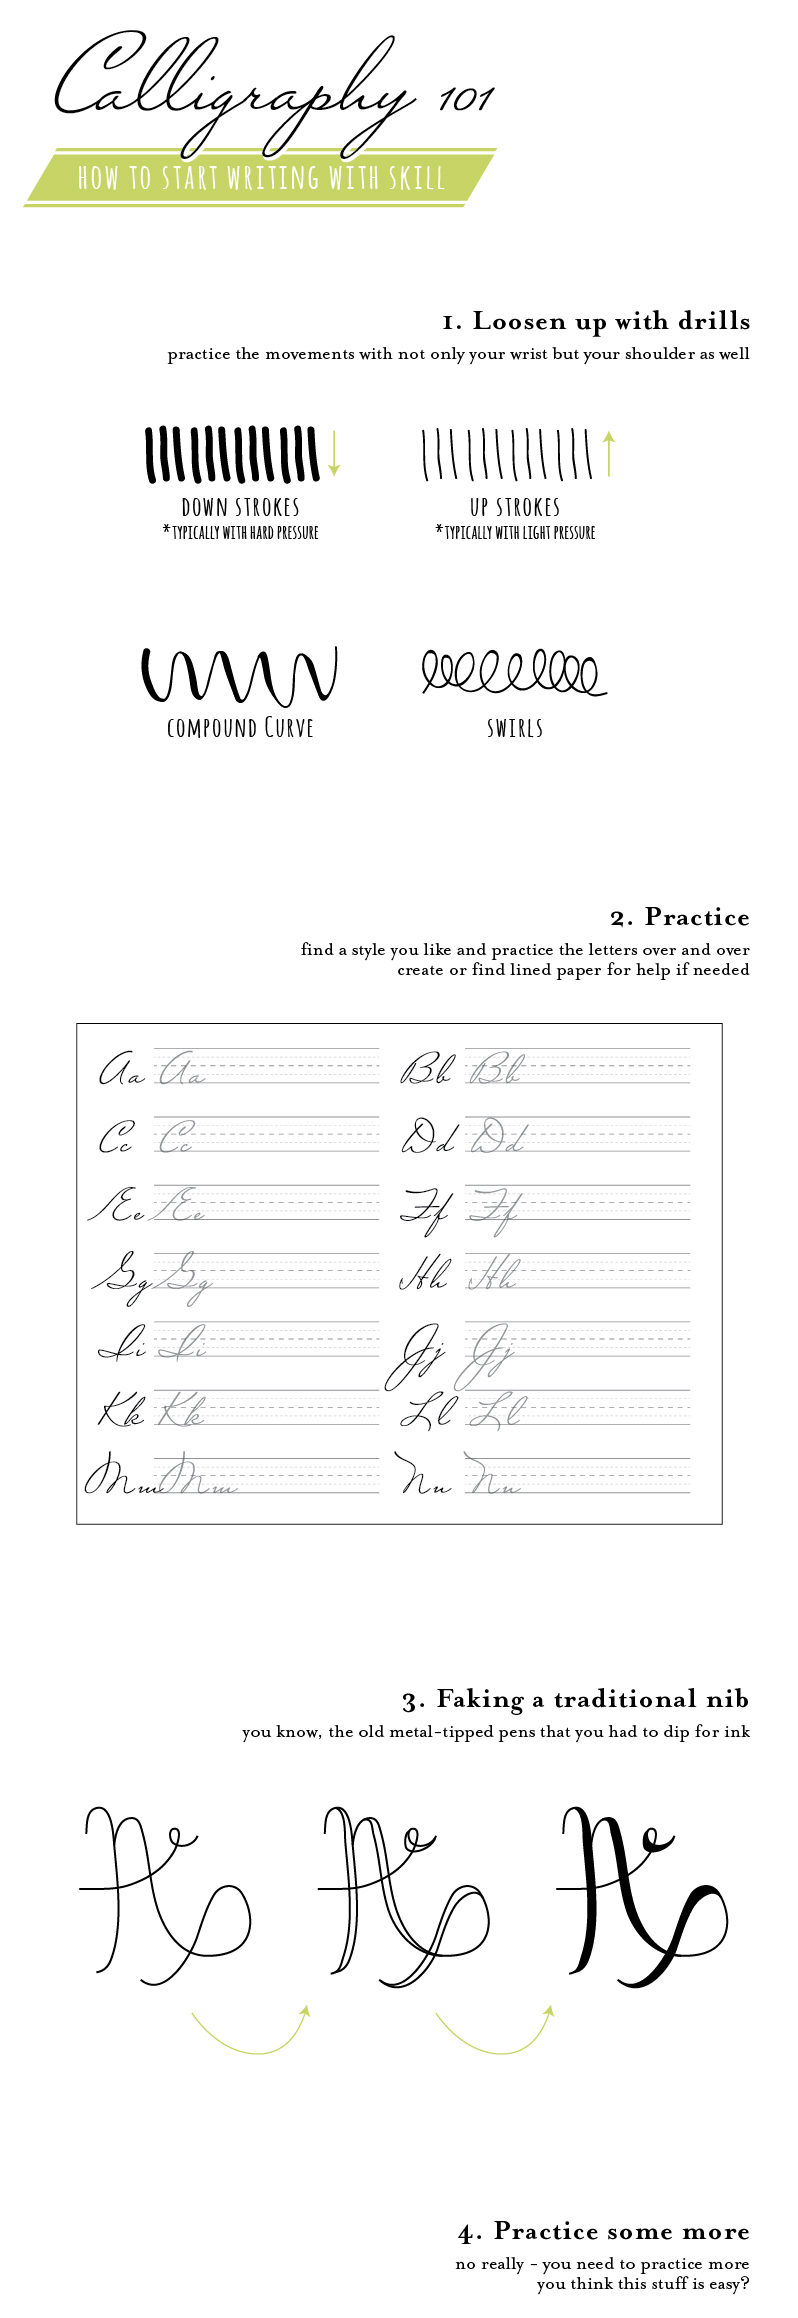 Calligraphy 101
HOW TO START WRITING WITH SKILL
1. Loosen up with drills
practice the movements with not only your wrist but your shoulder as well
DOWN STROKES
*TYPICALLY WITH HARD PRESSURE
UP STROKES
*TYPICALLY WITH LIGHT PRESSURE
COMPOUND CURVE
SWIRLS
2. Practice
find a style you like and practice the letters over and over
create or find lined paper for help if needed
Aa Aa Bb Bb
Cc Cc Dd Dd
Ee Ee Ff Ff
Gg Gg Hh Hh
Ii Ii Jj Jj
Kk Kk Ll Ll
Mm Mm Nn Nn
3. Faking a traditional nib
you know, the old metal-tipped pens that you had to dip for ink
A A A
4. Practice some more
no really - you need to practice more
you think this stuff is easy?